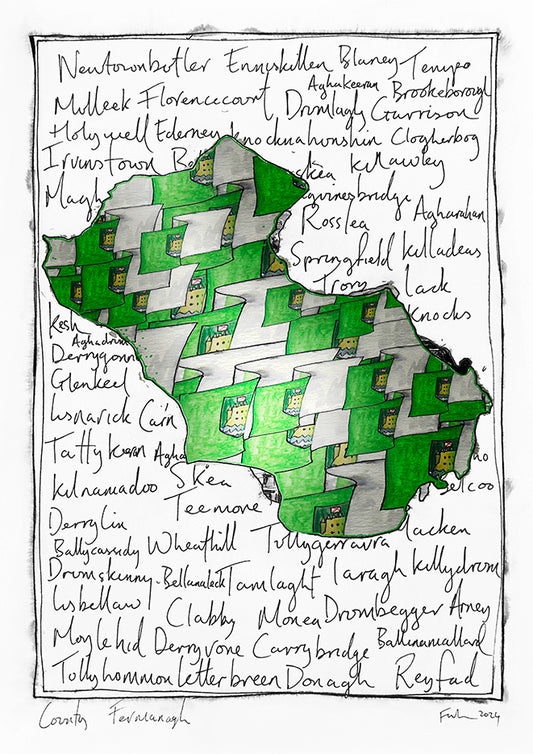 Newtownbutler Enniskillen Blaney Tempo
Aghakeeran Brookeborough
Mulleek Florencecourt Drumlaghy Garrison
Holywell Ederney Knocknahunshin Clogherbog
Irvinstown skea Killawley
Magh guinesbridge
Rosslea Agharahan
Springfield Killadeas
Trory Lack
Knocks
Kesh
Aghadrum
Derrygonn
Glenkeel
Lisnarick Carn
Tattykeeran Agha
Kilnamadoo Skea
Teemore
Derrylin Macken
Ballycassidy Wheathill
Drumskinny Bellanaleck Tamlaght Laragh Killydrum
Lisbellaw Clabby Monea Drumbegger Arney
Moylehid Derryvone Carrybridge Ballinamallard
Tullyhommon Letterbreen Donagh Reyfad
County Fermanagh
2024